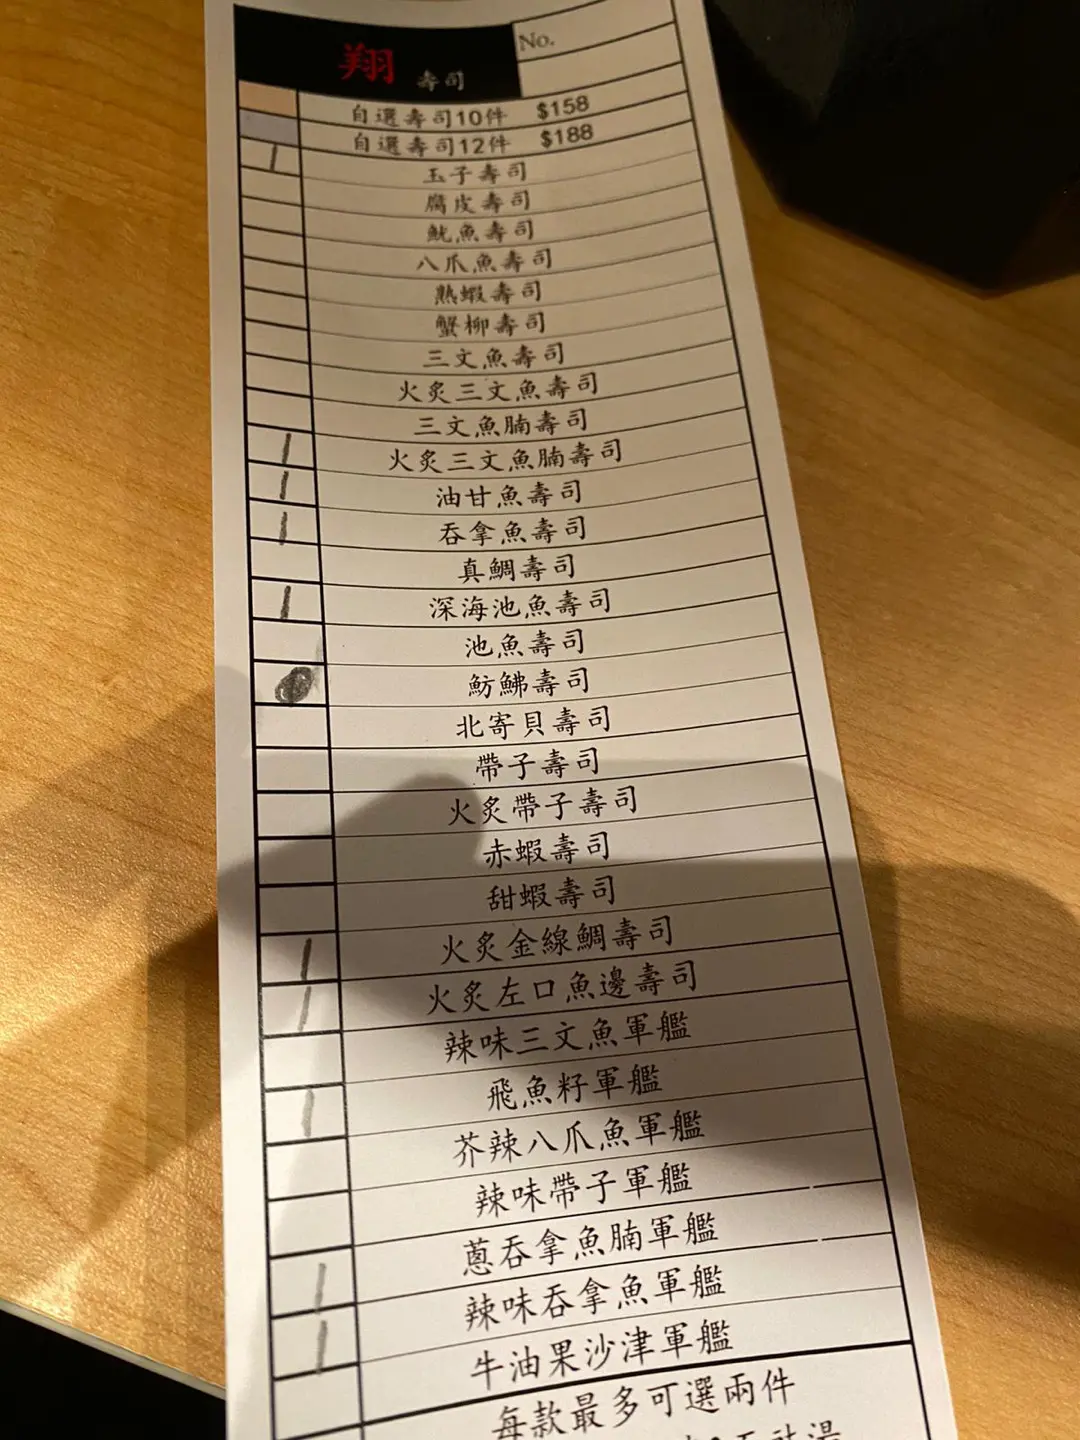 翔 壽司
No.
自選壽司10件 $158
自選壽司12件 $188
玉子壽司
腐皮壽司
魷魚壽司
八爪魚壽司
熟蝦壽司
蟹柳壽司
三文魚壽司
火炙三文魚壽司
三文魚腩壽司
火炙三文魚腩壽司
油甘魚壽司
吞拿魚壽司
真鯛壽司
深海池魚壽司
池魚壽司
魴鮄壽司
北寄貝壽司
帶子壽司
火炙帶子壽司
赤蝦壽司
甜蝦壽司
火炙金線鯛壽司
火炙左口魚邊壽司
辣味三文魚軍艦
飛魚籽軍艦
芥辣八爪魚軍艦
辣味帶子軍艦
蔥吞拿魚腩軍艦
辣味吞拿魚軍艦
牛油果沙津軍艦
每款最多可選兩件